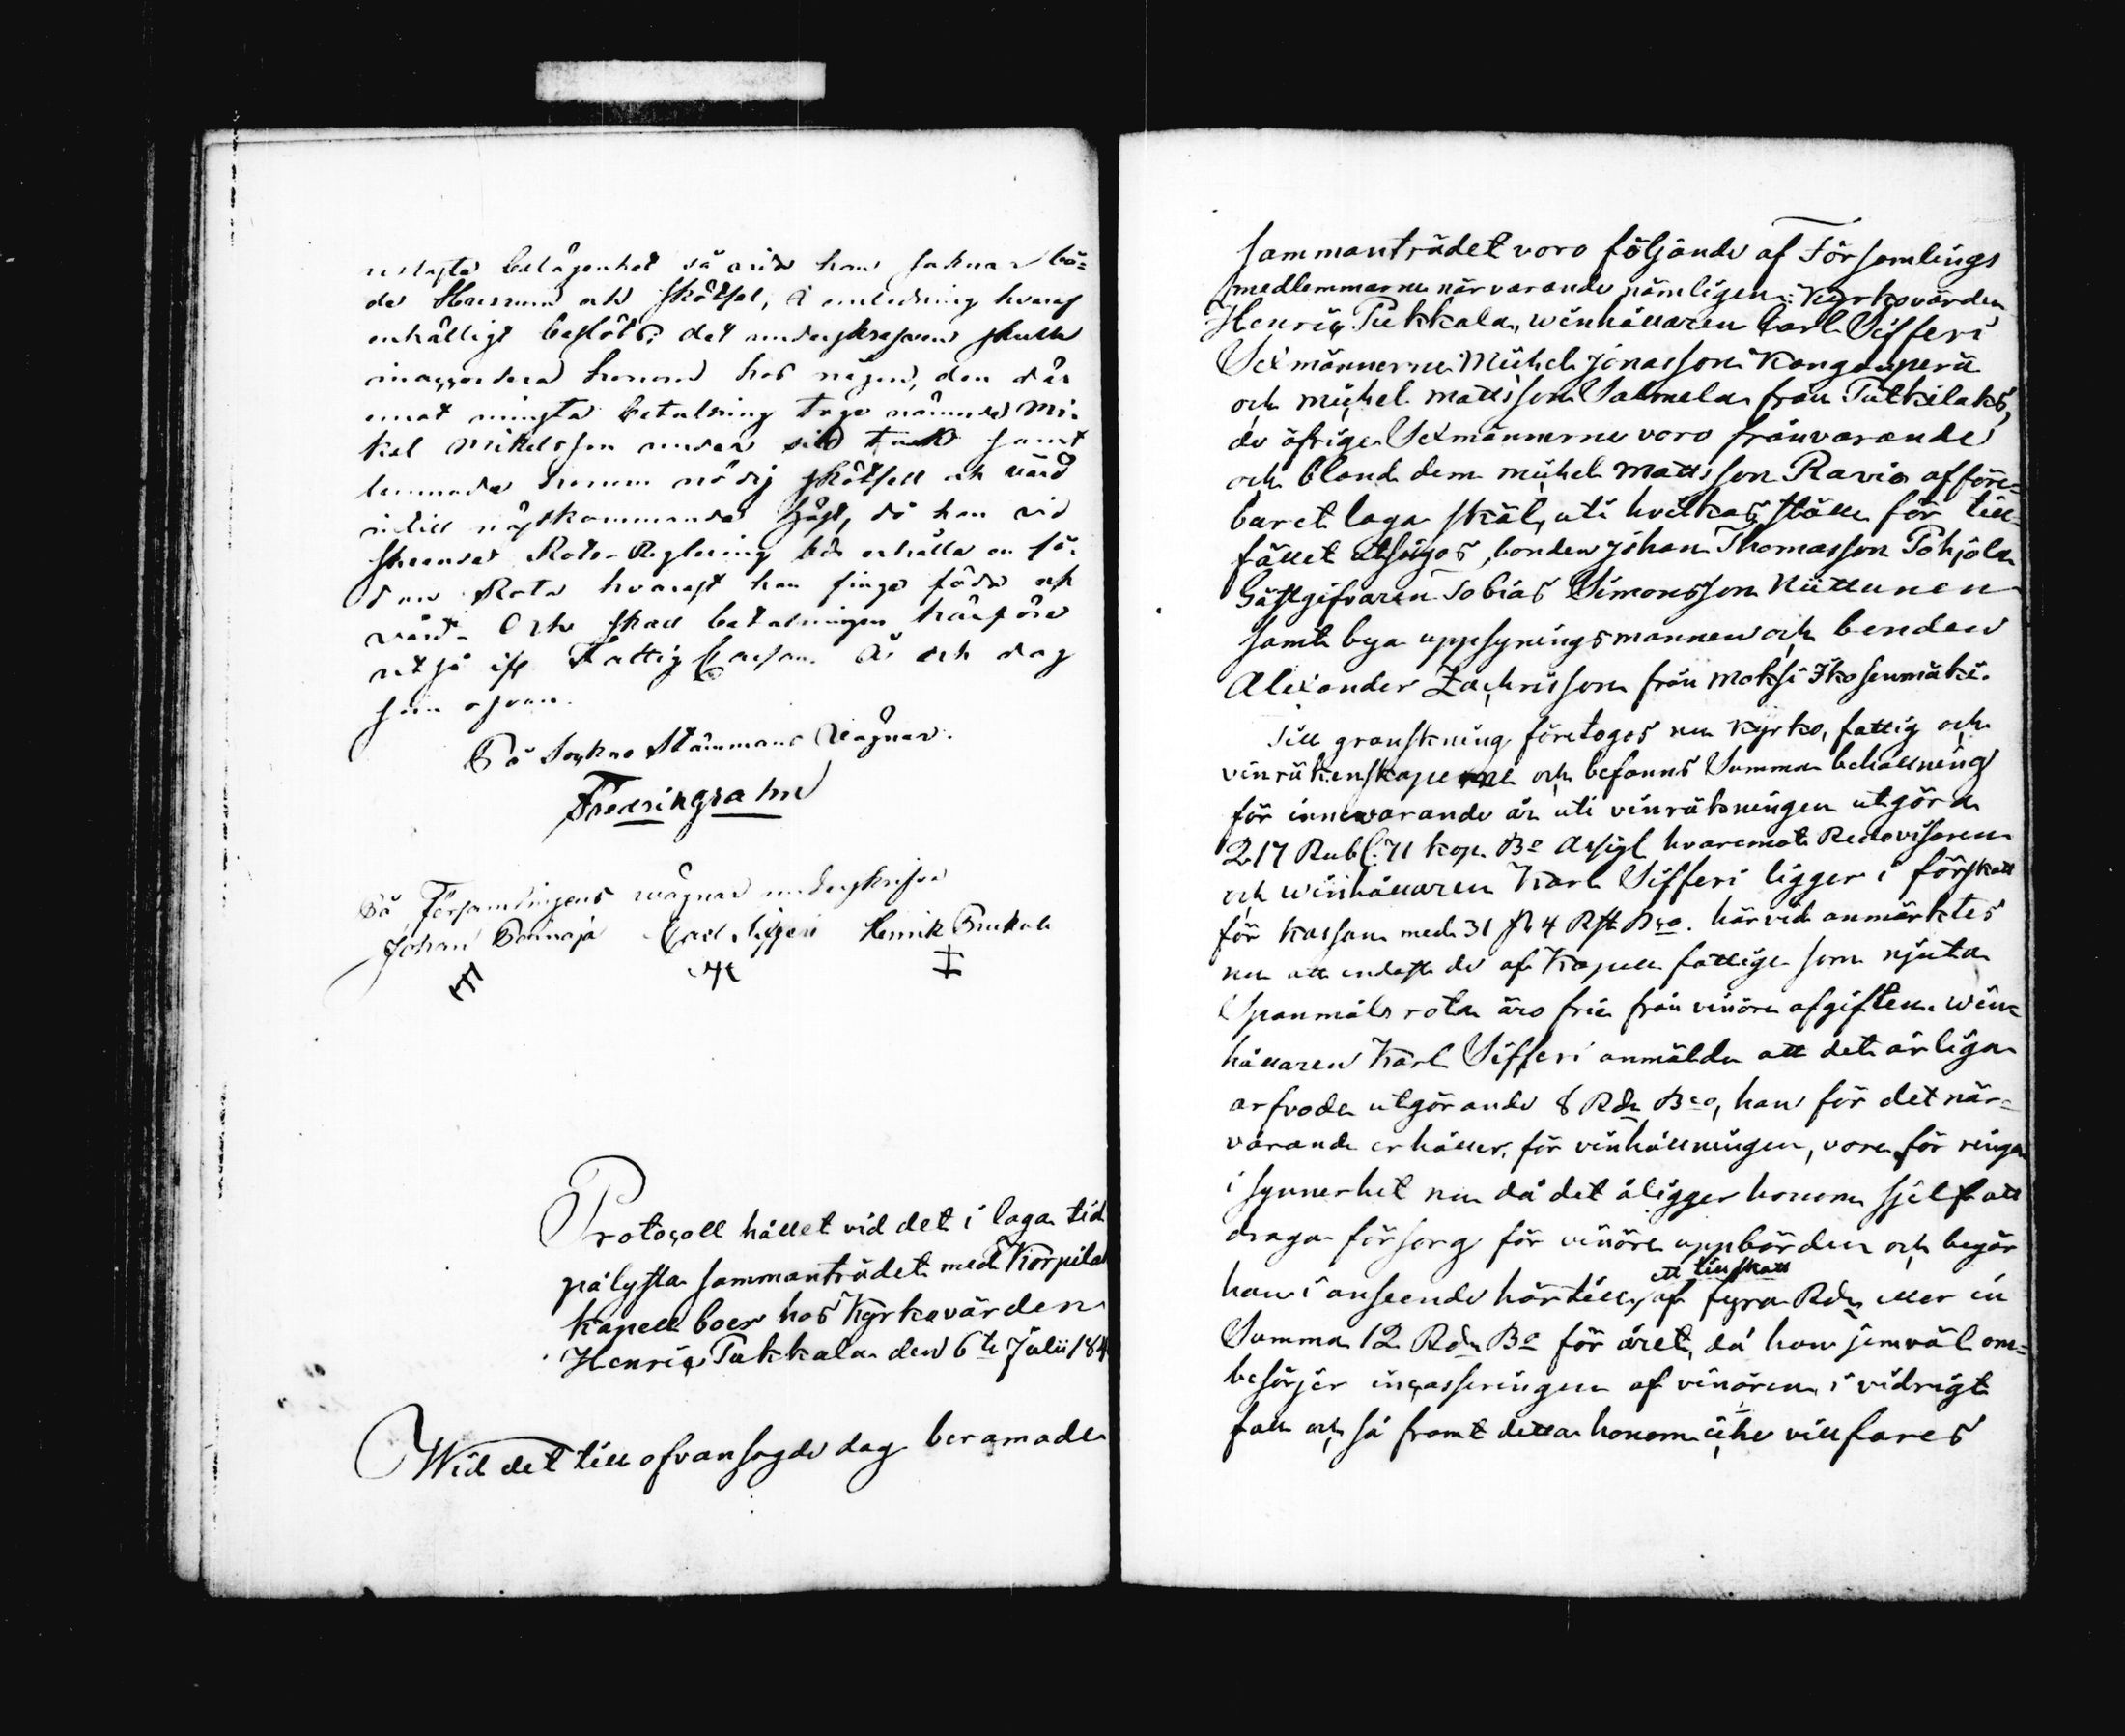 belägenhet så vida han saknar bå=
de Husrum och skötsel, i anledning hvaraf
enhälligt beslöts: det undertecknad skulle
inaccordera honom hos någon, den där
emot minsta betalning toge nämnde Mi-
kel Mikelsson under sitt tak samt
lemnade honom nödig skötsell och vård
intill nästkommande höst, då han vid
skeende Rote-Reglering bör erhålla en så-
dan Rota hvarest han finge föda och
vård. Och skall betalningen härföre
utgå ifr Fattig Cassan. År och dag
som ofvan.
På Sockne Stämmans Vägnar.
På Församlingens wägnar underskrifva
Johan Carl Sifferi Henrik
Protocoll hållet vid det i laga tid
pålysta sammanträdet med Korpilax
kapell boer hos Kyrkovärden
Henric Pukkala den 6te Julii 184
Wid det till ofvansagde dag beramade
sammanträdet voro följande af Församlings
medlemmarne närvarande nämligen: Kyrkovärden
Henric Pukkala, winhållaren Carl Sifferi
Sexmännerne Michel Jonasson Kangasperä
och Michel Mattsson Salmela från Putkilaks,
de öfrige Sexmännerne voro frånvarande
och bland dem Michel Mattsson Ravio af före=
buret laga skäl, uti hvilkas ställe för till-
fället utsågos, bonden Johan Thomasson Pohjola
Gästgifvaren Tobias Simonsson Niittunen
samt bya uppsyningsmannen och bonden
Alexander Zachrisson från Moksi Ikosenmäki.
Till granskning företogos nu Kyrko, fattig och
vinräkenskaperne och befanns Summa behållning
för innevarande år uti vinräkningen utgöra
217 Rubl. 71 kop. Bo Assigl hvaremot Redovisaren
och winhållaren Karl Sifferi ligger i förskott
för kassan med 31 sk 4 Rst Bco. härvid anmärktes
nu att endast de af Kapell fattige som njuta
Spanmåls rota äro fria från vinöre afgiften. Win=
hållaren Karl Sifferi anmälde att det årliga
arfvode utgörande 8 Rdr Bco, han för det när=
varande erhåller, för vinhållningen, vore för ringa
i synnerhet nu då det åligger honom sjelf att
draga försorg för vinöre uppbörden och begär
ett tillskott
han i anseende härtill, af fyra Rdr eller in
Summa 12 Rdr Bo för året, då han jemväl om=
besörjer incasseringen af vinören, i vidrigt
fall och så framt detta honom icke villfares